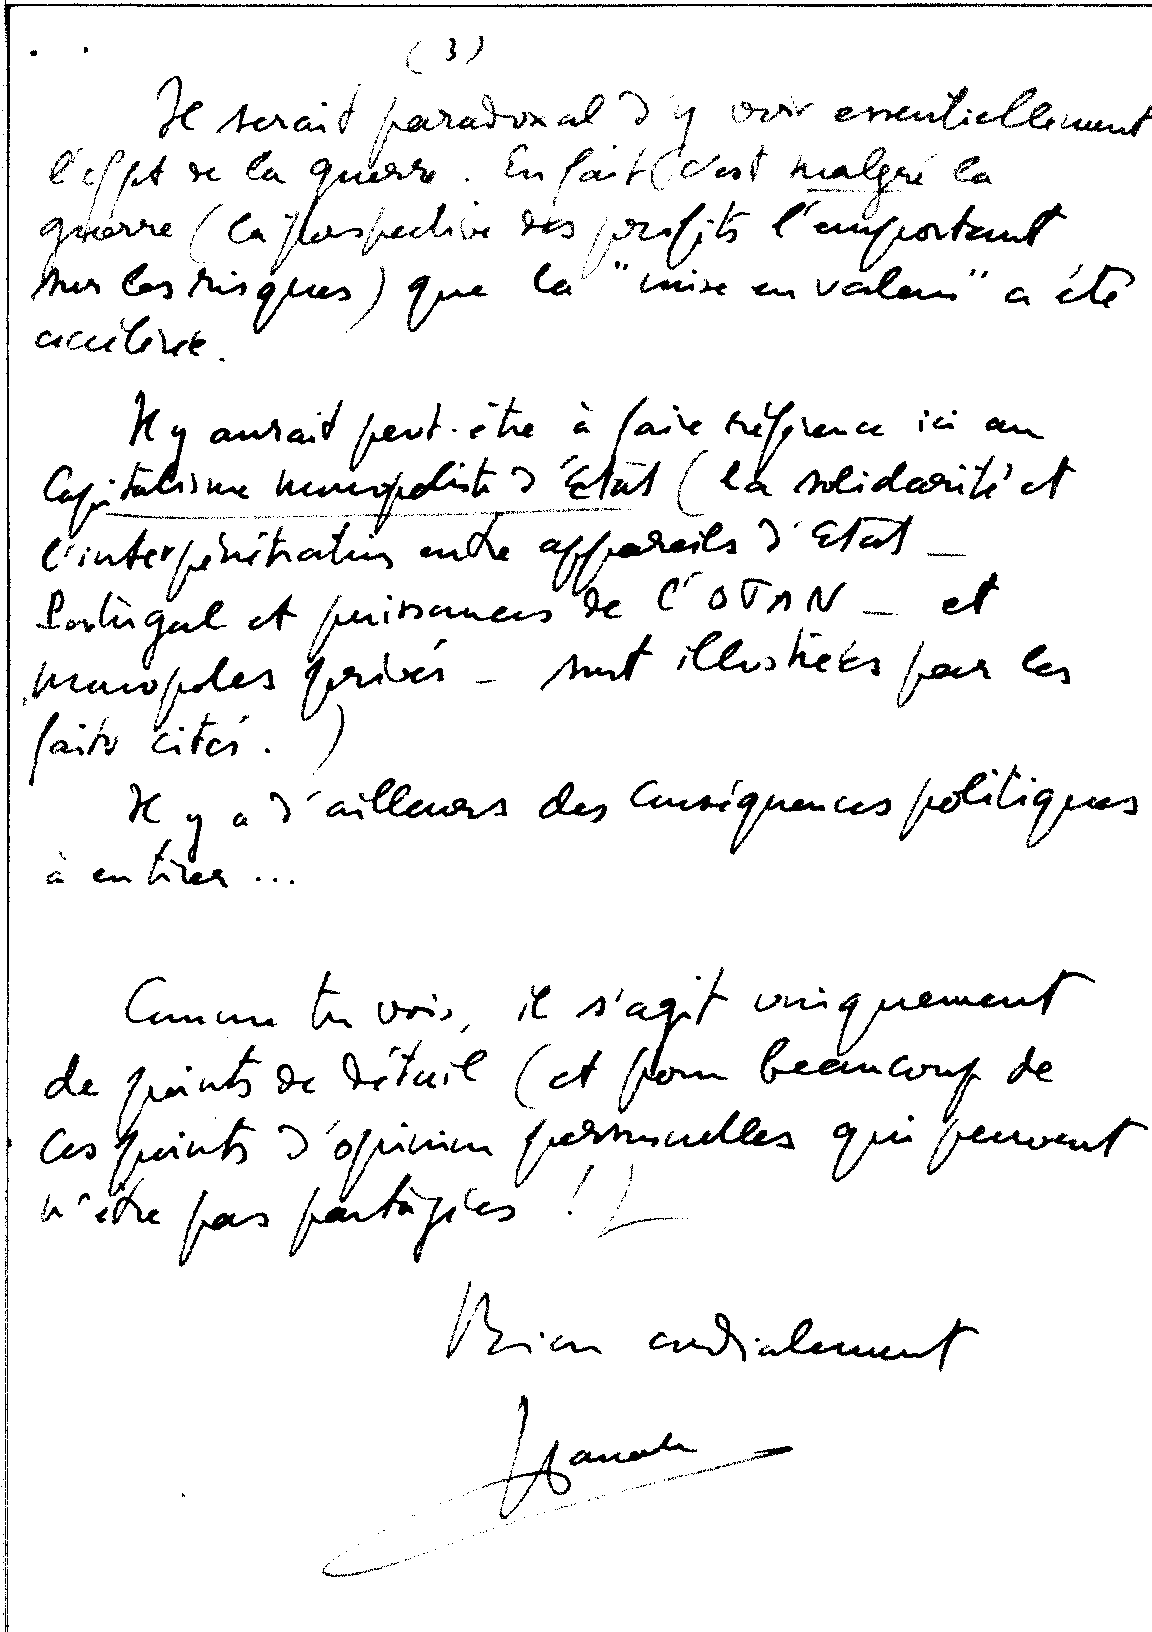 (3)
Il serait paradoxal d'y voir essentiellement
l'effet de la guerre. En fait c'est malgré la
guerre (la perspective des profits l'emportant
sur les risques) que la "mise en valeur" a été
accélérée.
Il y aurait peut-être à faire référence ici au
Capitalisme monopoliste d'État (la solidarité et
l'interpénétration entre appareils d'Etat –
Portugal et puissances de l'OTAN – et
monopoles privés – sont illustrées par les
faits cités.)
Il y a d'ailleurs des conséquences politiques
à en tirer...
Comme tu vois, il s'agit uniquement
de points de détail (et pour beaucoup de
ces points d'opinion personnelles qui peuvent
n'être pas partagées !)
Bien cordialement